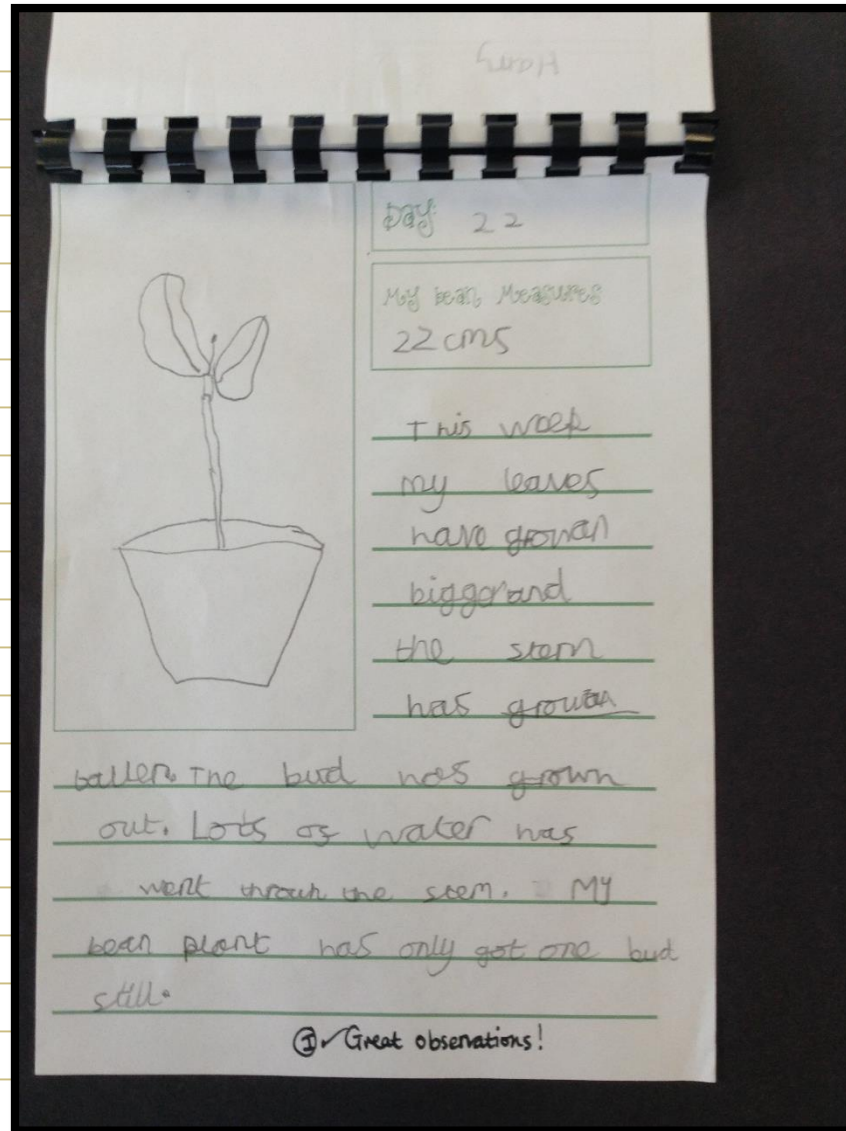 Harry
Day: 22
My bean Measures
22 cms
This week
my leaves
have growan
biggerand
the stem
has growan
taller. The bud has grown
out. Lots of water has
went throuh the stem. My
bean plant has only got one bud
still.
I ✓ Great observations!